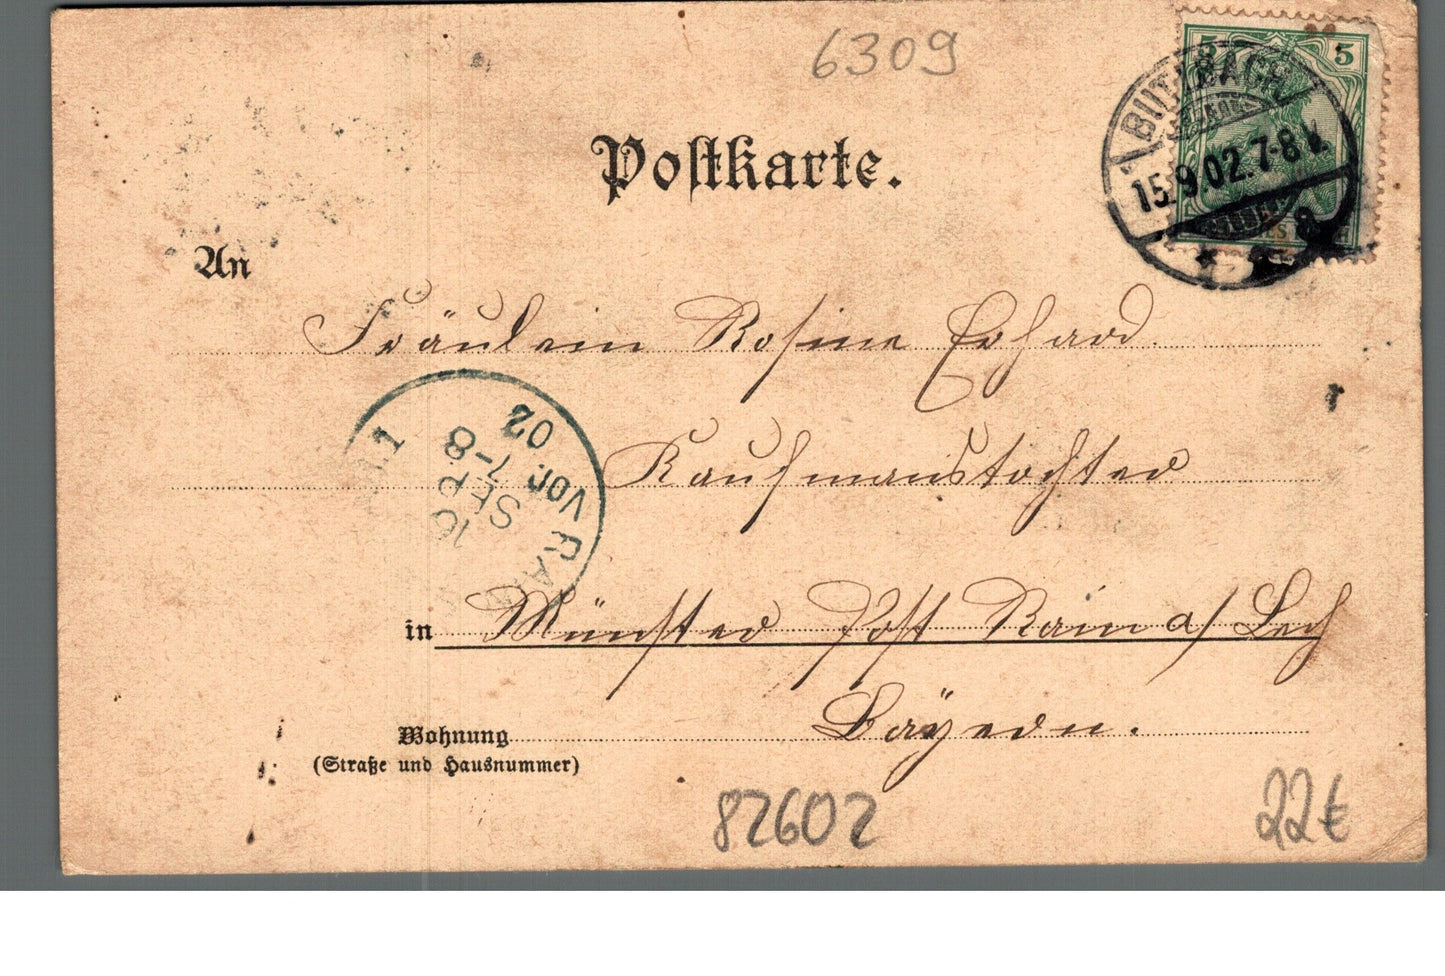 6309
5 5
BUTZBACH
15.9.02.7-8V.
Postkarte.
An
Fräulein Rosine Erhard.
Kaufmanstochter
RAIN
16
SEP
7-8 Vor.
02
in Münster Post Rain a/Lech
Bayern.
Wohnung
(Straße und Hausnummer)
82602
22€